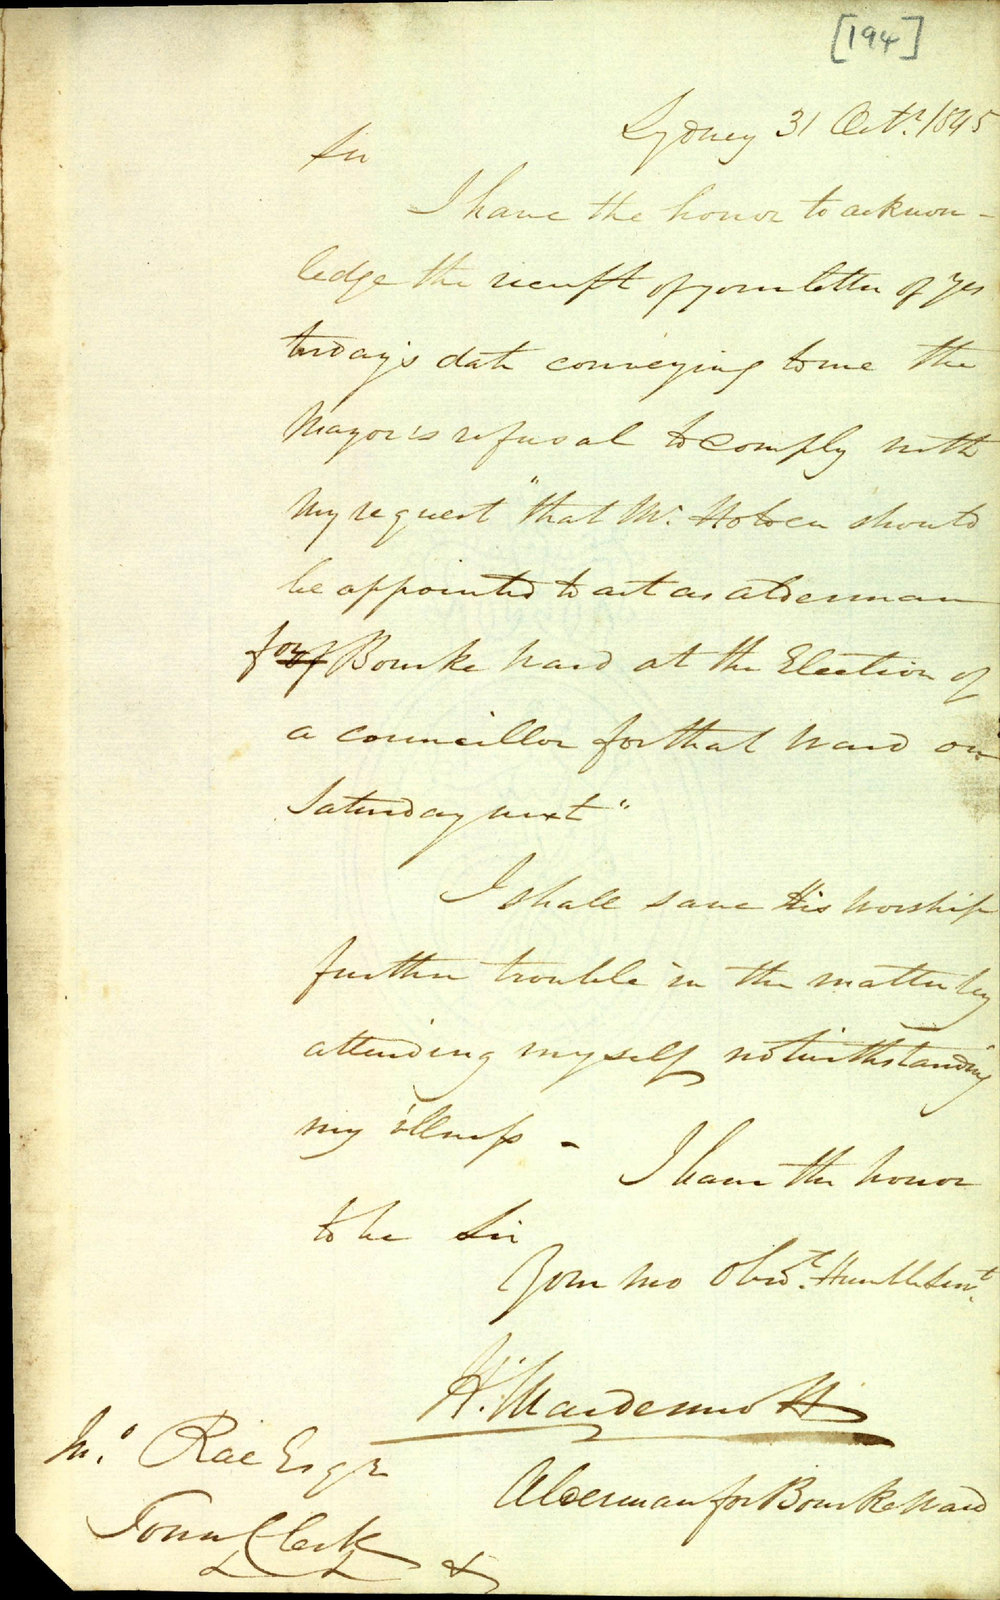 [194]
Sydney 31 Octr. 1845
Sir
I have the honor to acknow-
ledge the receipt of your letter of yes
terday's date conveying to me the
Mayor's refusal to comply with
my request "that Mr. Holden should
be appointed to act as alderman
for of Bourke Ward at the Election of
a councillor for that Ward on
Saturday next"
I shall save His Worship
further trouble in the matter by
attending myself notwithstanding
my illness -
I have the honor
to be Sir
Your mo Obdt. Humble Servt.
H. Macdermott
Alderman for Bourke Ward
Jno. Rae Esqr
Town Clerk &